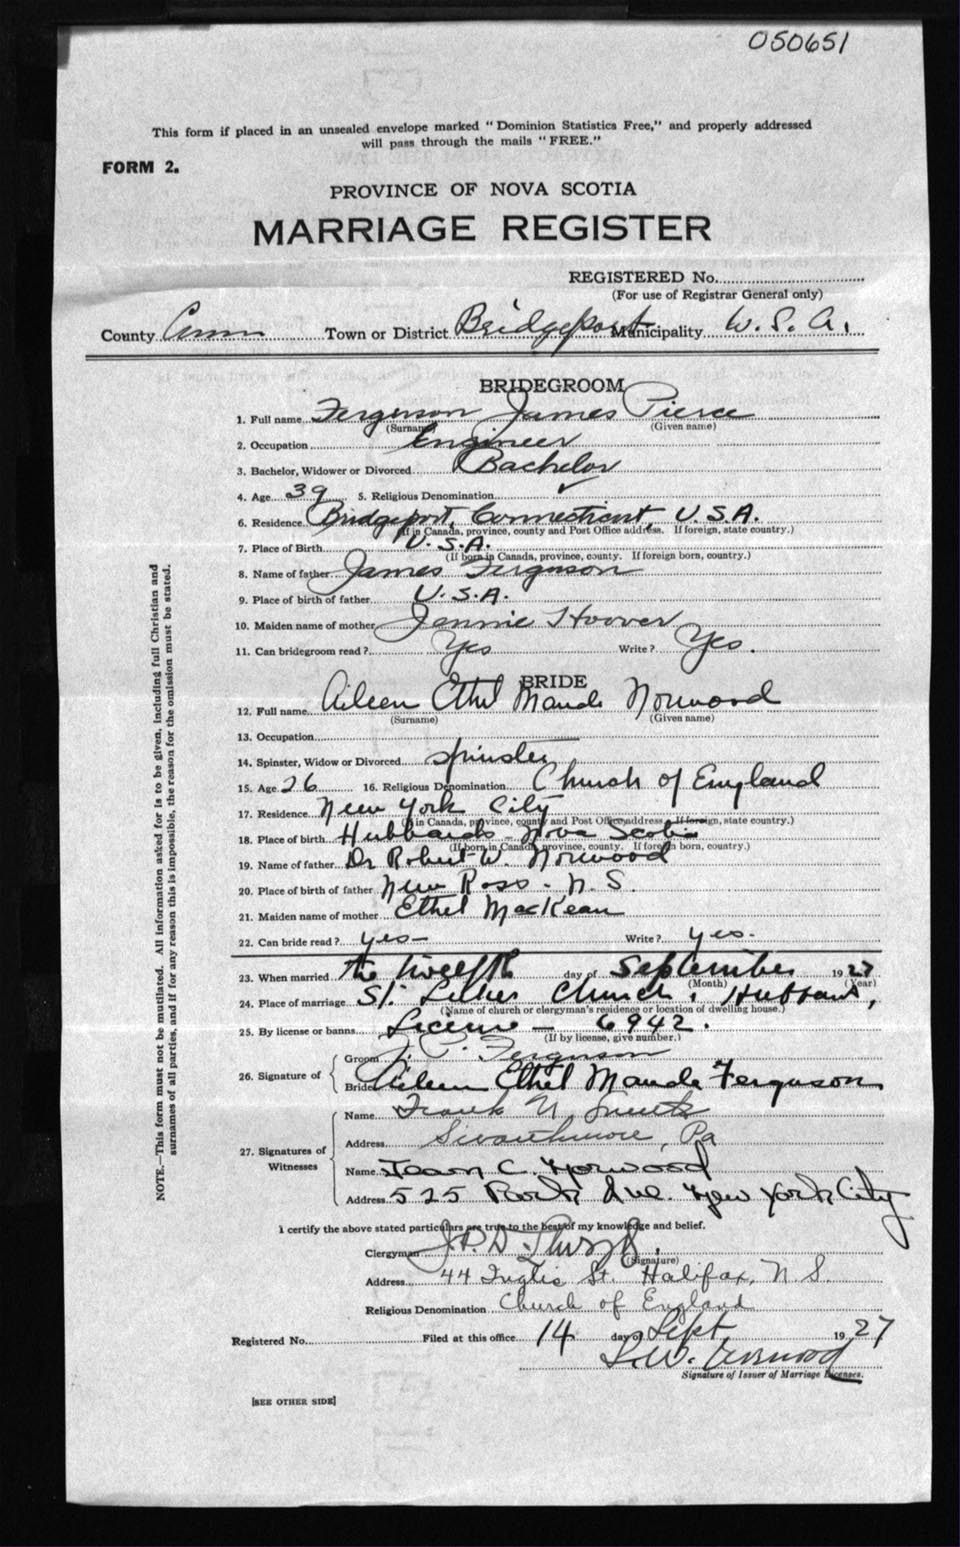 050651
This form if placed in an unsealed envelope marked "Dominion Statistics Free," and properly addressed
will pass through the mails "FREE."
FORM 2.
PROVINCE OF NOVA SCOTIA
MARRIAGE REGISTER
REGISTERED No.
(For use of Registrar General only)
County Conn Town or District Bridgeport Municipality U. S. A.
BRIDEGROOM
1. Full name Ferguson James Pierce
(Surname) (Given name)
2. Occupation Engineer
3. Bachelor, Widower or Divorced Bachelor
4. Age 39 5. Religious Denomination
6. Residence Bridgeport, Connecticut, U.S.A.
(If in Canada, province, county and Post Office address. If foreign, state country.)
7. Place of Birth U.S.A.
(If born in Canada, province, county. If foreign born, country.)
8. Name of father James Ferguson
9. Place of birth of father U.S.A.
10. Maiden name of mother Jennie Hoover
11. Can bridegroom read? Yes Write? Yes.
BRIDE
12. Full name Aileen Ethel Maude Norwood
(Surname) (Given name)
13. Occupation
14. Spinster, Widow or Divorced Spinster
15. Age 26 16. Religious Denomination Church of England
17. Residence New York City
(If in Canada, province, county and Post Office address. If foreign, state country.)
18. Place of birth Hubbards Nova Scotia
(If born in Canada, province, county. If foreign born, country.)
19. Name of father Dr Robert W. Norwood
20. Place of birth of father New Ross - N. S.
21. Maiden name of mother Ethel MacKean
22. Can bride read? yes - Write? yes.
23. When married the twelfth day of September 1927
(Month) (Year)
24. Place of marriage St. Lukes Church, Hubbards,
(Name of church or clergyman's residence or location of dwelling house.)
25. By license or banns License - 6942.
(If by license, give number.)
26. Signature of
Groom J. P. Ferguson
Bride Aileen Ethel Maude Ferguson
27. Signatures of Witnesses
Name Frank N.
Address Swarthmore, Pa
Name Jean C. Norwood
Address 525 Park Ave. New York City
I certify the above stated particulars are true to the best of my knowledge and belief.
Clergyman J.P.D.
(Signature)
Address 44 Inglis St. Halifax, N. S.
Religious Denomination Church of England
Registered No. Filed at this office 14 day of Sept 1927
Signature of Issuer of Marriage Licenses.
[SEE OTHER SIDE]
NOTE.—This form must not be mutilated. All information asked for is to be given, including full Christian and
surnames of all parties, and if for any reason this is impossible, the reason for the omission must be stated.